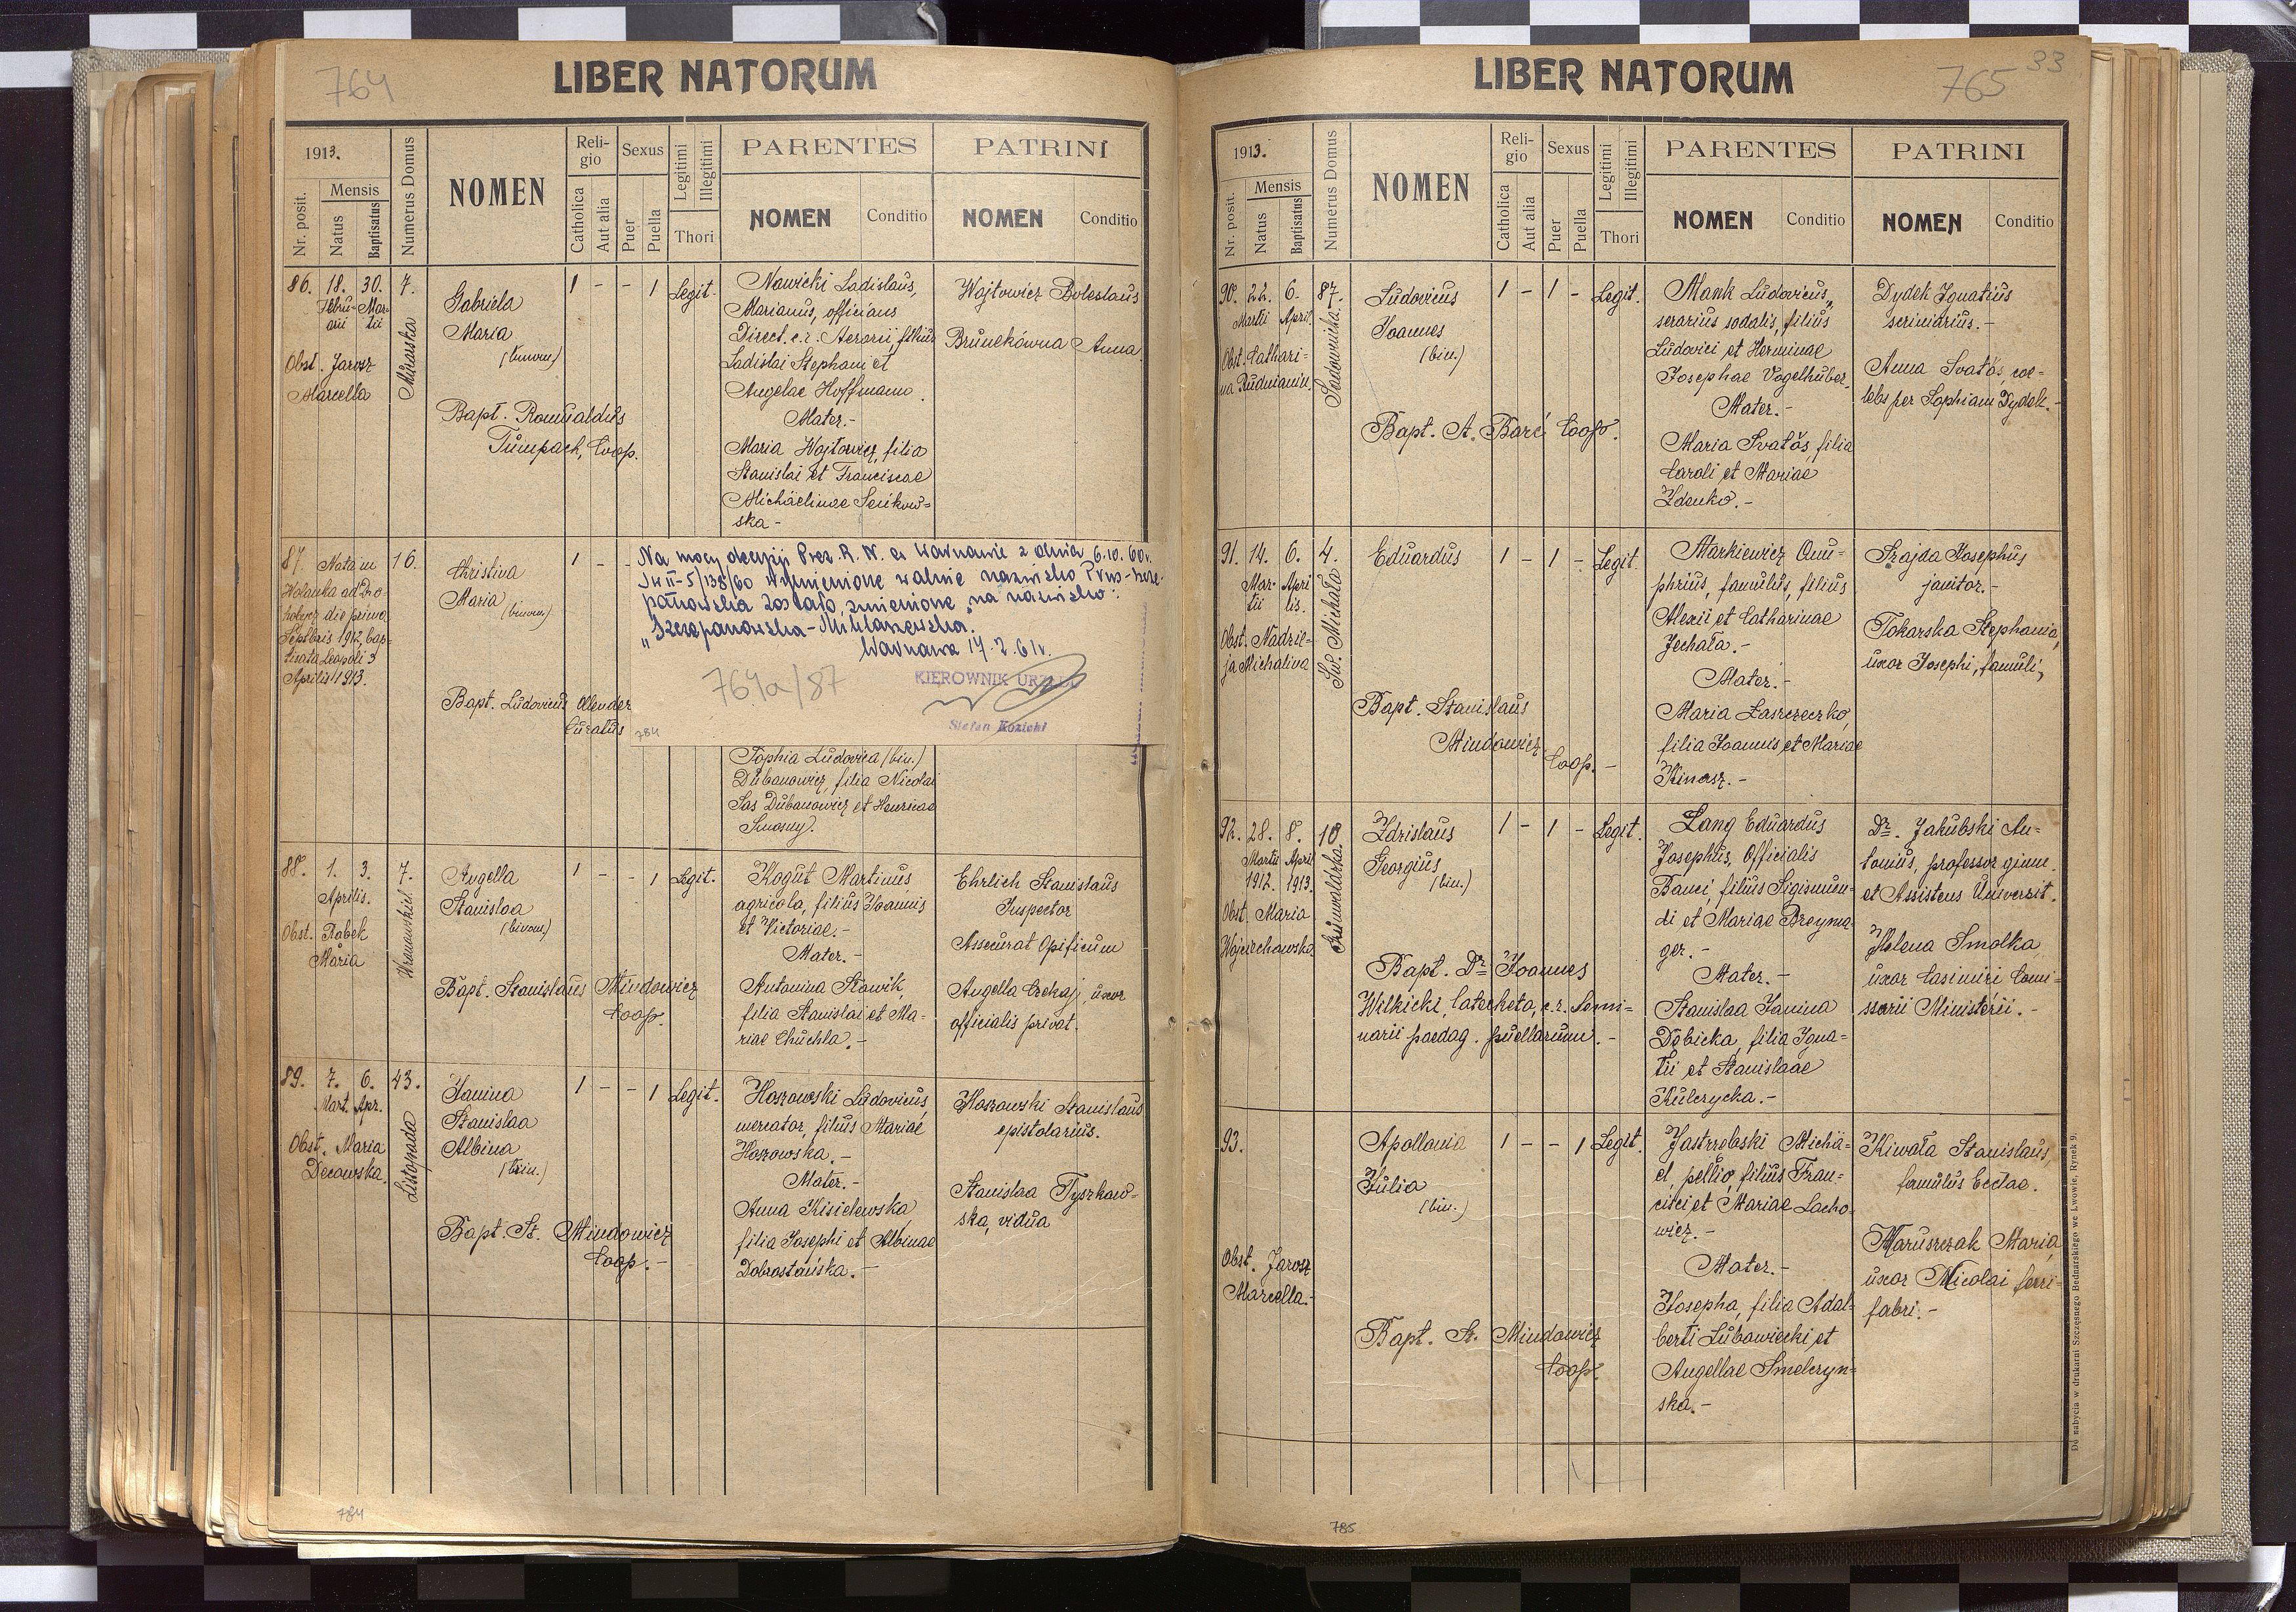 764
LIBER NATORUM
1913.
Nr. posit.
Mensis
Natus
Baptisatus
Numerus Domus
NOMEN
Religio
Catholica
Aut alia
Sexus
Puer
Puella
Legitimi
Illegitimi
Thori
PARENTES
NOMEN
Conditio
PATRINI
NOMEN
Conditio
86. 18. 30. 7.
Febru- Mar-
arii tii
Obst. Jarosz
Marcella
Gabriela
Maria
(binom.)
Bapt. Romualdus
Tumpach, Coop.
1 - - 1 Legit.
Nawicki Ladislaus,
Marianus, officians
Direct. c.r. Aerarii, filius
Ladislai Stephani et
Angelae Hoffmann.
Mater.-
Maria Wojtowicz, filia
Stanislai et Franciscae
Michaelinae Senkow=
ska-
Wojtowicz Boleslaus
Brunekówna Anna
87. Nata in 16.
Wolanka ad Dro-
hobycz die prima
Septbris 1912, bap-
tisata Leopoli 3
Aprilis 1913.
Christina
Maria
(binom.)
Bapt. Ludovicus Ollender
Curatus
1 -
Na mocy decyzji Prez. R. N. w Warszawie z dnia 6.10.60r.
wymienione w akcie nazwisko Prus-Szcze-
panowska zostało zmienione na nazwisko:
"Szczepanowska-Miklaszewska.
Warszawa 17.2.61r.
764a/87
KIEROWNIK URZĘDU
Stefan Kozicki
784
Sophia Ludovica (bin.)
Dubanowicz, filia Nicolai
Sas Dubanowicz et Henricae
88. 1. 3. 7.
Aprilis.
Obst. Rabek
Maria
Angella
Stanislaa
(binom.)
Bapt. Stanislaus Mindowicz
Coop.
1 - - 1 Legit.
Kogut Martinus
agricola, filius Joannis
et Victoriae.-
Mater.-
Antonina Stawik,
filia Stanislai et Ma-
riae Chuchla.-
Ehrlich Stanislaus
Inspector
Assecurat Opificum
Angella Czekaj, uxor
officialis privat.
89. 7. 6. 43.
Mart. Apr.
Obst. Maria
Decowska.
Listopada
Janina
Stanislaa
Albina
(trin.)
Bapt. St. Mindowicz
Coop.-
1 - - 1 Legit.
Hoszowski Ludovicus,
mercator, filius Mariae
Hoszowska.-
Mater.-
Anna Kisielewska,
filia Josephi et Albinae
Dobrostańska.-
Hoszowski Stanislaus
epistolarius.
Stanislaa Tyszkow-
ska, vidua
784
765
33
LIBER NATORUM
1913.
Nr. posit.
Mensis
Natus
Baptisatus
Numerus Domus
NOMEN
Religio
Catholica
Aut alia
Sexus
Puer
Puella
Legitimi
Illegitimi
Thori
PARENTES
NOMEN
Conditio
PATRINI
NOMEN
Conditio
90. 22. 6. 87.
Martii April.
Obst. Cathari-
na Rudnianin.
Sadownicka.
Ludovicus
Joannes
(bin.)
Bapt. A. Barć Coop.
1 - 1 - Legit.
Mank Ludovicus,
serarius sodalis, filius
Ludovici et Herminae
Josephae Vogelhuber.
Mater.-
Maria Svatoš, filia
Caroli et Mariae
Zdenko.-
Dydek Ignatius
scriniarius.-
Anna Svatoš, coe-
lebs per Sophiam Dydek.-
91. 14. 6. 4.
Mar- Apri
tii lis.
Obst. Nadzie-
ja Michalina
Św. Michała
Eduardus
Bapt. Stanislaus
Mindowicz
Coop.-
1 - 1 - Legit.
Markiewicz Onu-
phrius, famulus, filius
Alexii et Catharinae
Jechała.-
Mater.-
Maria Łaszczeczko,
filia Joannis et Mariae
Kinasz.-
Szajda Josephus
janitor.-
Tokarska Stephania,
uxor Josephi, famuli,
92. 28. 8. 10
Martii April
1912. 1913.
Obst. Maria
Wojciechowska.
Grunwaldzka.
Zdzislaus
Georgius
(bin.)
Bapt. Dr. Joannes
Wilkicki, Catecheta, c.r. Semi=
narii paedag. puellarum.-
1 - 1 - Legit.
Lang Eduardus
Josephus, Officialis
Banci, filius Sigismun-
di et Mariae Breyna-
ger.-
Mater.-
Stanislaa Janina
Dobicka, filia Igna=
tii et Stanislaae
Kulczycka.-
Dr. Jakubski An-
tonius, professor gimn.
et Assistens Universit.
Helena Smolka
uxor Casimiri Comi-
ssarii Ministerii.-
93.
Obst. Jarosz
Marcella.-
Apollonia
Julia
(bin.)
Bapt. St. Mindowicz
Coop.
1 - - 1 Legit.
Jastrzebski Michä-
el, pellio, filius Fran-
cisci et Mariae Lacho-
wicz.-
Mater.-
Josepha, filia Adal-
berti Lubowiecki et
Angellae Smelczyn-
ska.-
Kiwała Stanislaus,
famulus Eccłae.
Maruszczak Maria
uxor Nicolai ferri-
fabri.-
Do nabycia w drukarni Szczęsnego Bednarskiego we Lwowie, Rynek 9.
785